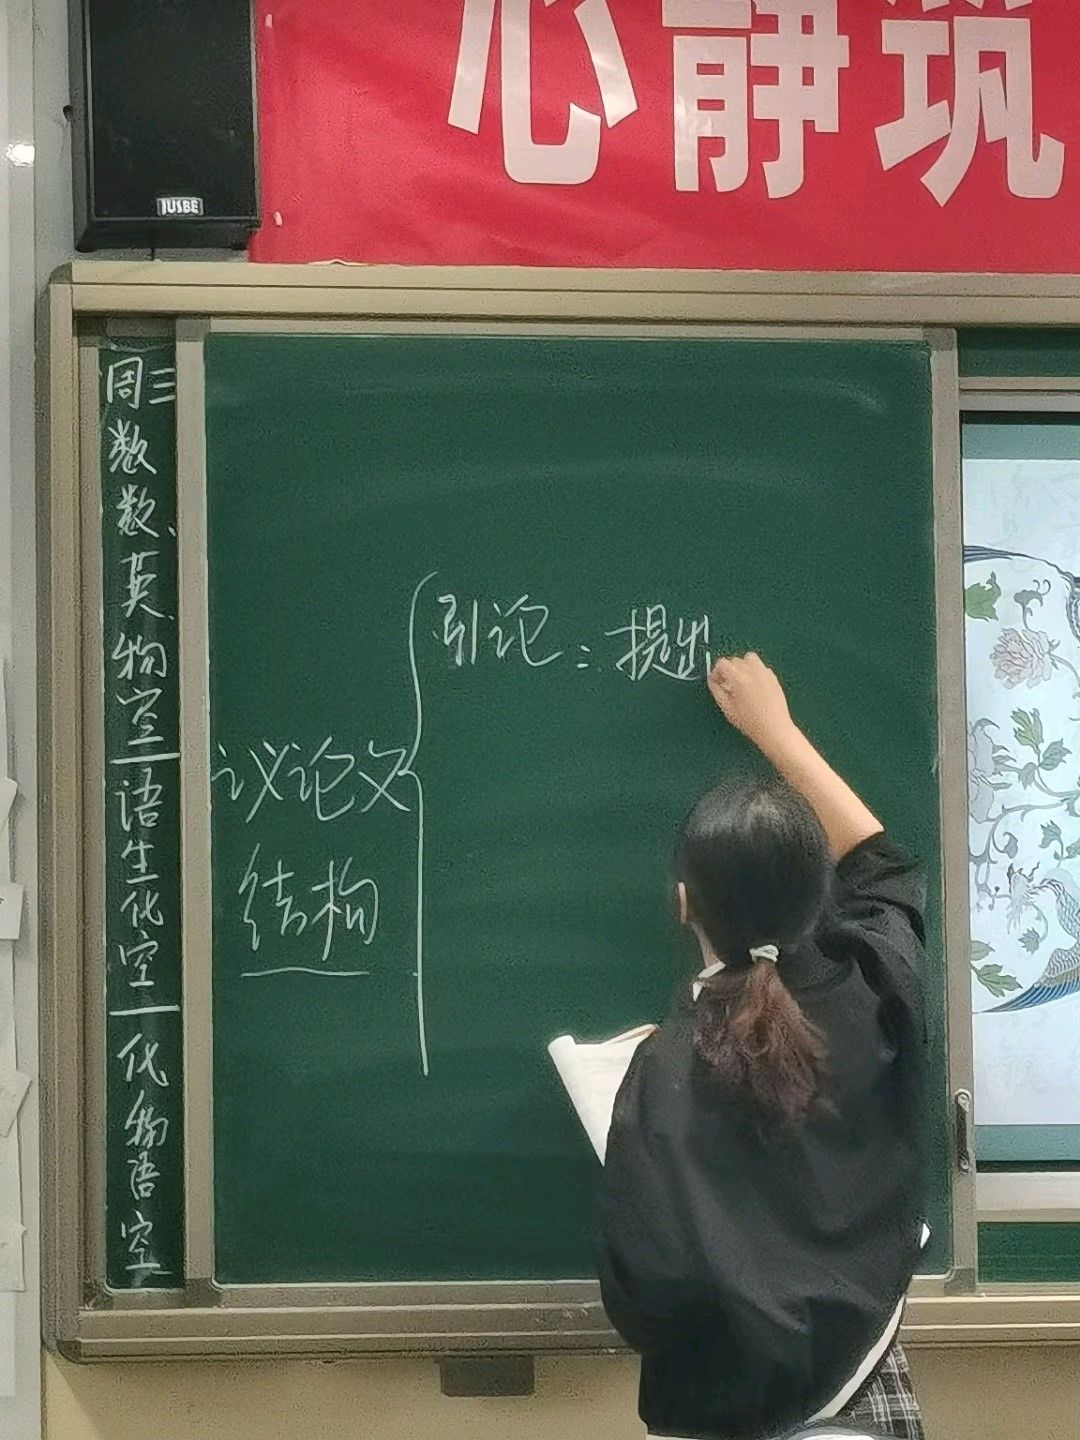 心静筑
JUSBE
周三
数
数、
英、
物
空
语
生
化
空
化
物
语
空
引论：提出
议论文
结构